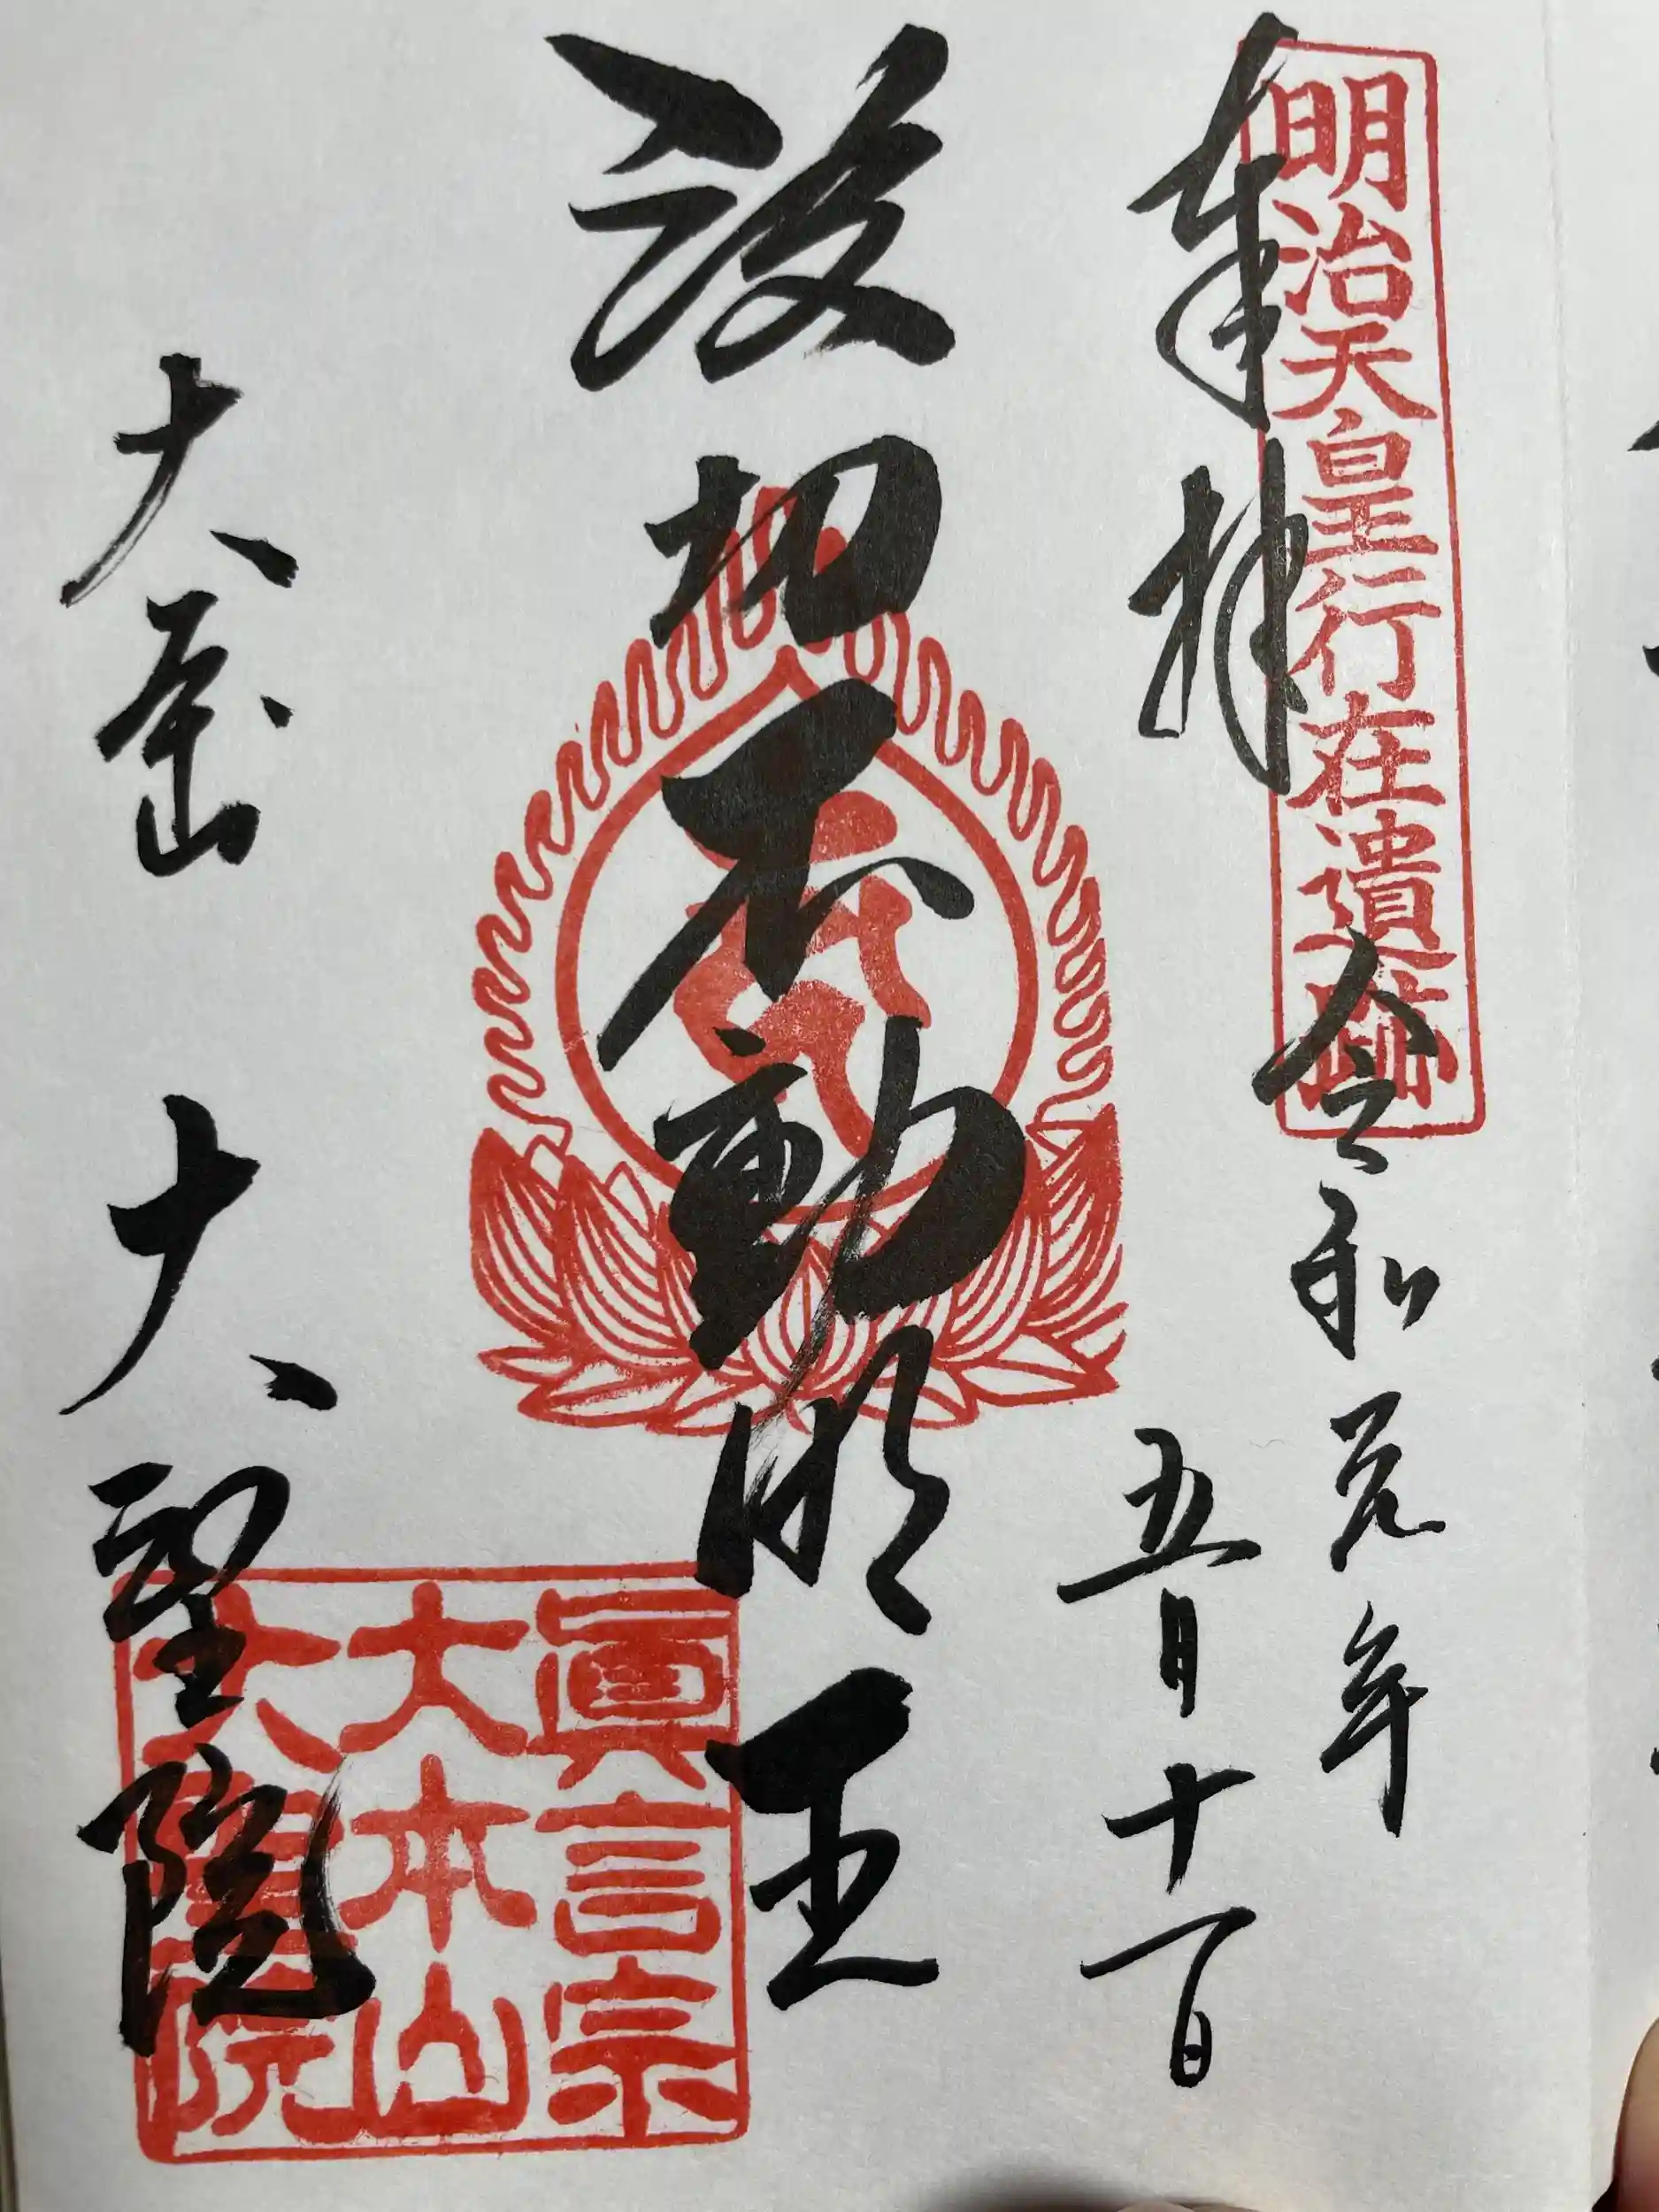 明治天皇行在遺
奉拝
令和元年
五月十一日
波切不動明王
大本山 大聖院
眞言宗
大本山
大聖院